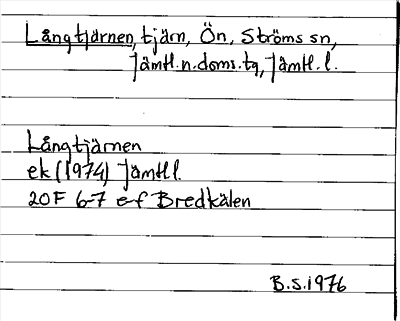 Långtjärnen, tjärn, Ön, Ströms sn,
Jämtl.n.doms.tg, Jämtl.l.
Långtjärnen
ek (1974) Jämtl l.
20F 6-7 e-f Bredkälen
B.S. 1976